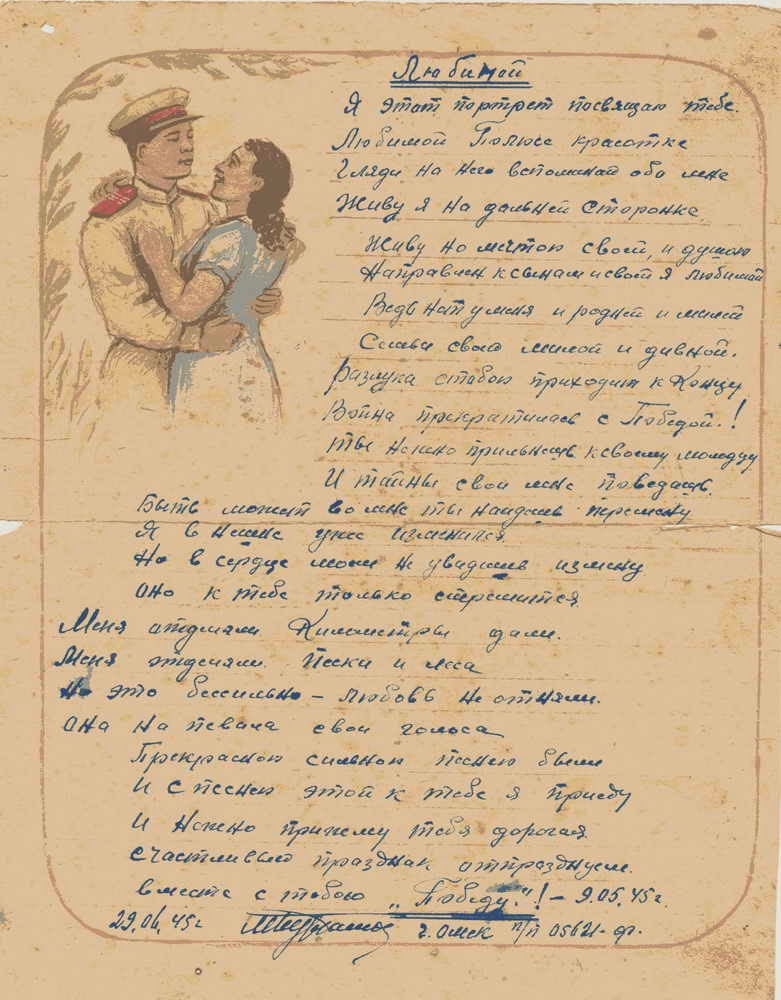 Любимой
Я этот портрет посвящаю тебе.
Любимой Полюсе красотке
Гляди на него вспоминай обо мне
Живу я на дальней сторонке.
Живу но мечтою своей, и душою
Направлен к сынам и своей я любимой
Ведь нет у меня и родней и милей
Семьи свой милой и дивной.
Разлука стобою приходит к концу
Война прекратилась с Победой.!
Ты нежно прильнешь к своему молодцу
И тайны свои мне поведаешь.
Быть может во мне ты найдешь перемену
Я внешне уже изменился
Но в сердце моем не увидишь измену
Оно к тебе только стремится.
Меня отделяли Километры дали.
Меня отделяли Пески и леса
Но это бессильно – любовь не отняли.
Она на певала свои голоса
Прекрасною сильною песнею были
И с песнею этой к тебе я приеду
И нежно прижму тебя дорогая
счастливый праздник отпразднуем.
вместе с тобою „Победу."! – 9.05.45г.
29.06.45г г. Омск п/п 05621-ф.